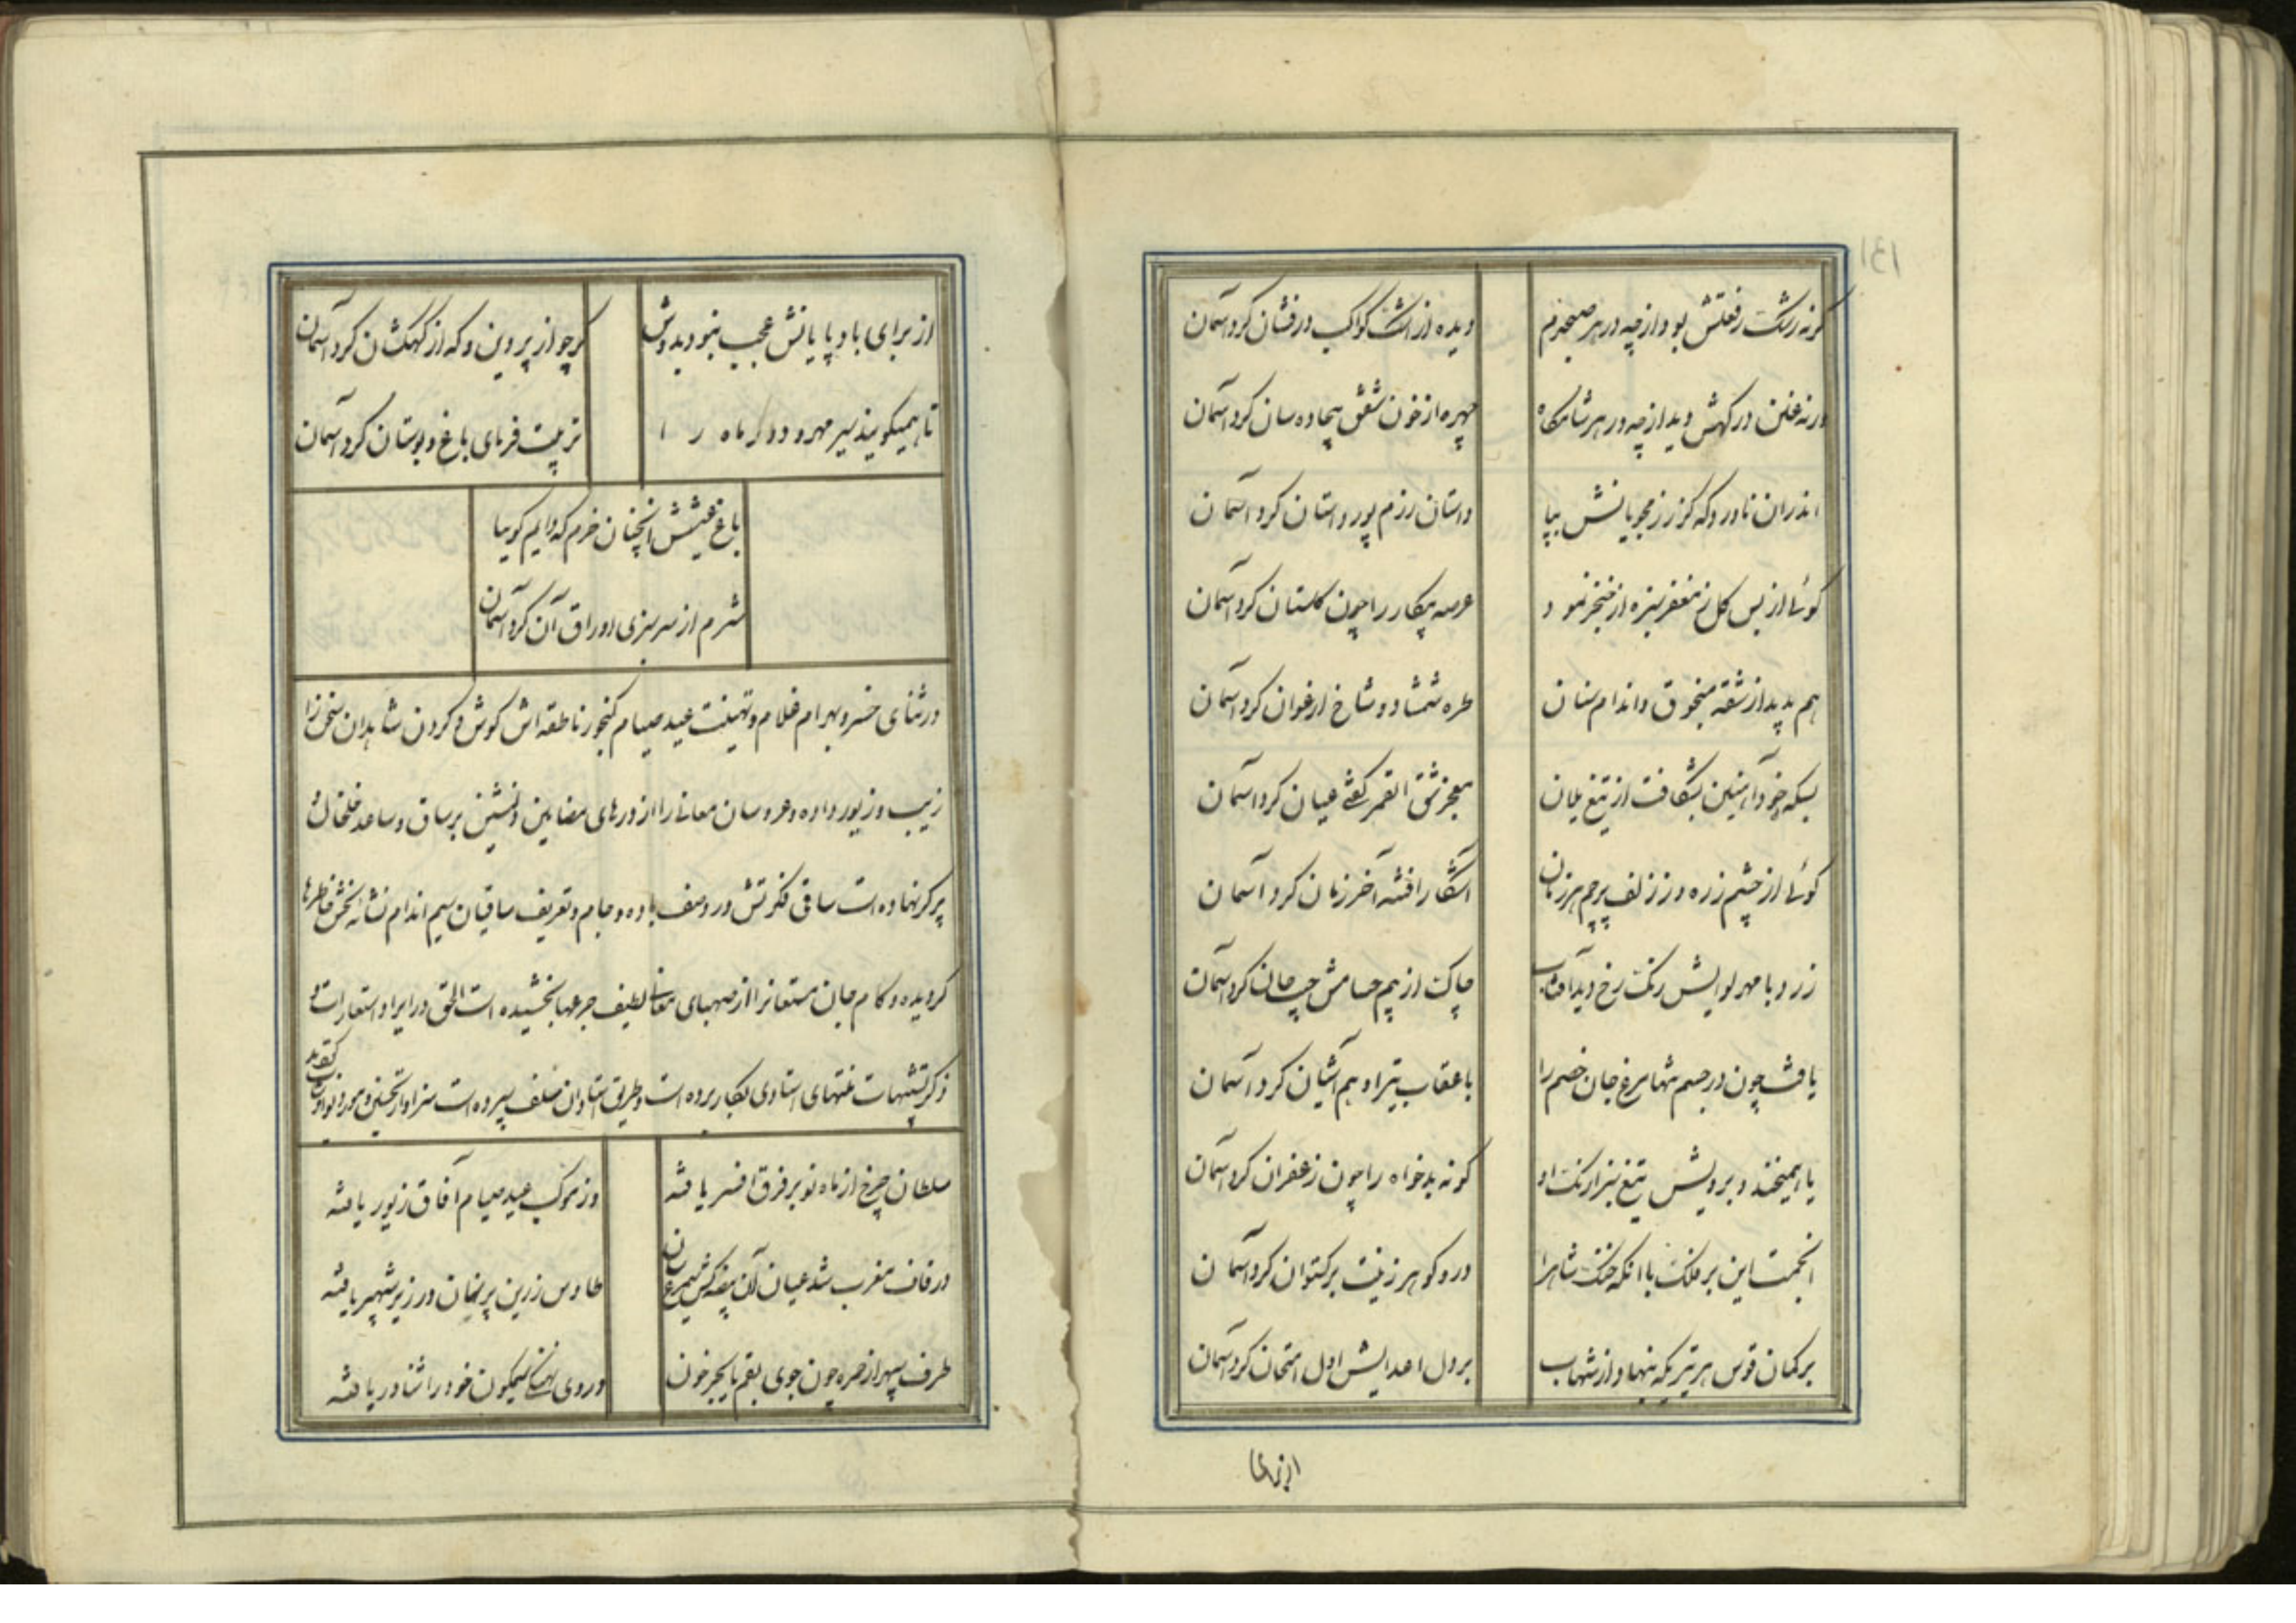 گرنه رشک رفعتش بود از چه در هر صبحدم
دیده از اشک کواکب درفشان کرد آسمان
ورنه غبن درگهش دید از چه در هر شامگاه
چهره از خون شفق بیجاده سان کرد آسمان
اندران ناورد که کز رزمجویانش بپا
داستان رزم پور داستان کرد آسمان
کوئی از بس کل ز مغفر سبزه از خنجر نمود
عرصه پیکار را چون کلستان کرد آسمان
هم پدید از شقه منجوق و اندام سنان
طره شمشاد و شاخ ارغوان کرد آسمان
بسکه خود آهنین بشکافت از تیغ یلان
معجز شق القمر کفتی عیان کرد آسمان
کوئی از چشم زره وز زلف پرچم هر زمان
آشکارا فتنه آخر زمان کرد آسمان
زرد با مهر لوایش رنک رخ دید آفتاب
چاک از بیم حسامش جیب جان کرد آسمان
یافت چون در جسم شها مرغ جان خصم را
با عقاب تیر او هم آشیان کرد آسمان
یا همیخندد برویش تیغ سبز ارنک او
کونه بدخواه را چون زعفران کرد آسمان
انجمست این بر فلک یا آنکه خنک شاه را
در و کوهر زینت برکستوان کرد آسمان
بر کمان قوس هر تیریکه بنهاد از شهاب
بر دل اعدایش اول امتحان کرد آسمان
از برای
از برای باد پایانش عجب نبود بدوش
کر جو از پروین و که از کهکشان کرد آسمان
تا همیکویند سیر مهر و دور ماه را
تربیت فرمای باغ و بوستان کرد آسمان
باغ عیشش آنچنان خرم که دایم کوییا
شرم از سرسبزی اوراق آن کرد آسمان
در ثنای خسرو بهرام غلام و تهنیت عید صیام کنجور ناطقه اش کوش و کردن شاهدان سخن را
زیب و زیور داده و عروسان معانی را از درهای مضامین دلنشین بر ساق و ساعد خلخال و
پرکر نهاده است ساقی فکرتش در وصف باده و جام و تعریف ساقیان سیم اندام نشائه بخش خاطرها
کردیده و کام جان مستعانرا از صهبای معانی لطیف جرعها بخشیده است الحق در ایراد استعارات و
ذکر تشبیهات منتهای استادی بکار برده است و طریق استادان سلف سپرده است سزاوار تحسین و مورد نوازش
سلطان چرخ از ماه نو بر فرق افسر یافته
وز موکب عید صیام آفاق زیور یافته
در قاف مغرب شد عیان آن بیضه کش سیمرغ
طاوس زرین پر نهان در زیر شهپر یافته
طرف سپهر از حمره چون جوی بقم یا بحر خون
در وی نهنک نیلکون خود را شناور یافته